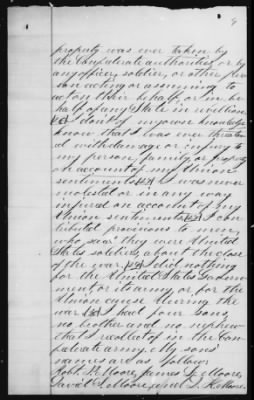 9
property was ever taken by
the Confederate authorities or by
any officer, soldier, or other per
son acting or assuming to
act on their behalf or in be
half of any State in rebellion
I don't of my own knowledge
know that I was ever threaten
ed with damage or injury to
my person, family, or property
on account of my Union
sentiments I was never
molested or in any way
injured on account of my
Union sentiments I con
tributed provisions to men
who said they were United
States soldiers, about the close
of the war I did nothing
for the United States Govern
ment or its army, or for the
Union cause during the
war I had four sons,
no brother and no nephew
that I recollect of in the Con
federate army. My sons'
names are as follows
John Moore, James Moore,
David Moore, and Moore